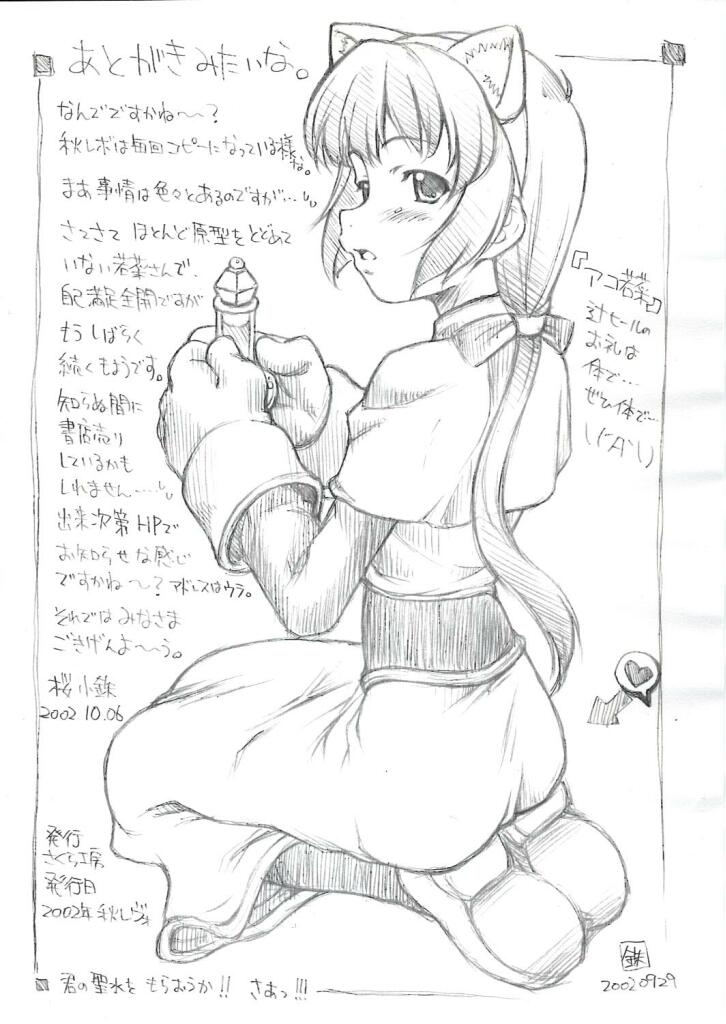 あとがきみたいな。
なんでですかね〜〜?
秋レボは毎回コピーになっている様な。
まあ事情は色々とあるのですが…
さてさて ほとんど原型をとどめて
いない若菜さんで、
自己満足全開ですが
もうしばらく
続くもようです。
知らぬ間に
書店売り
しているかも
しれません……
出来次第HPで
お知らせな感じ
ですかね〜〜? アドレスはウラ。
それでは みなさま
ごきげんよ〜〜う。
桜小銖
2002.10.06
『アコ若菜』
辻ヒールの
お礼は
体で…
ぜひ体で…
発行
さくら工房
発行日
2002年 秋レヴォ
君の聖水を もらおうか!! さあっ!!!
銖
20020929